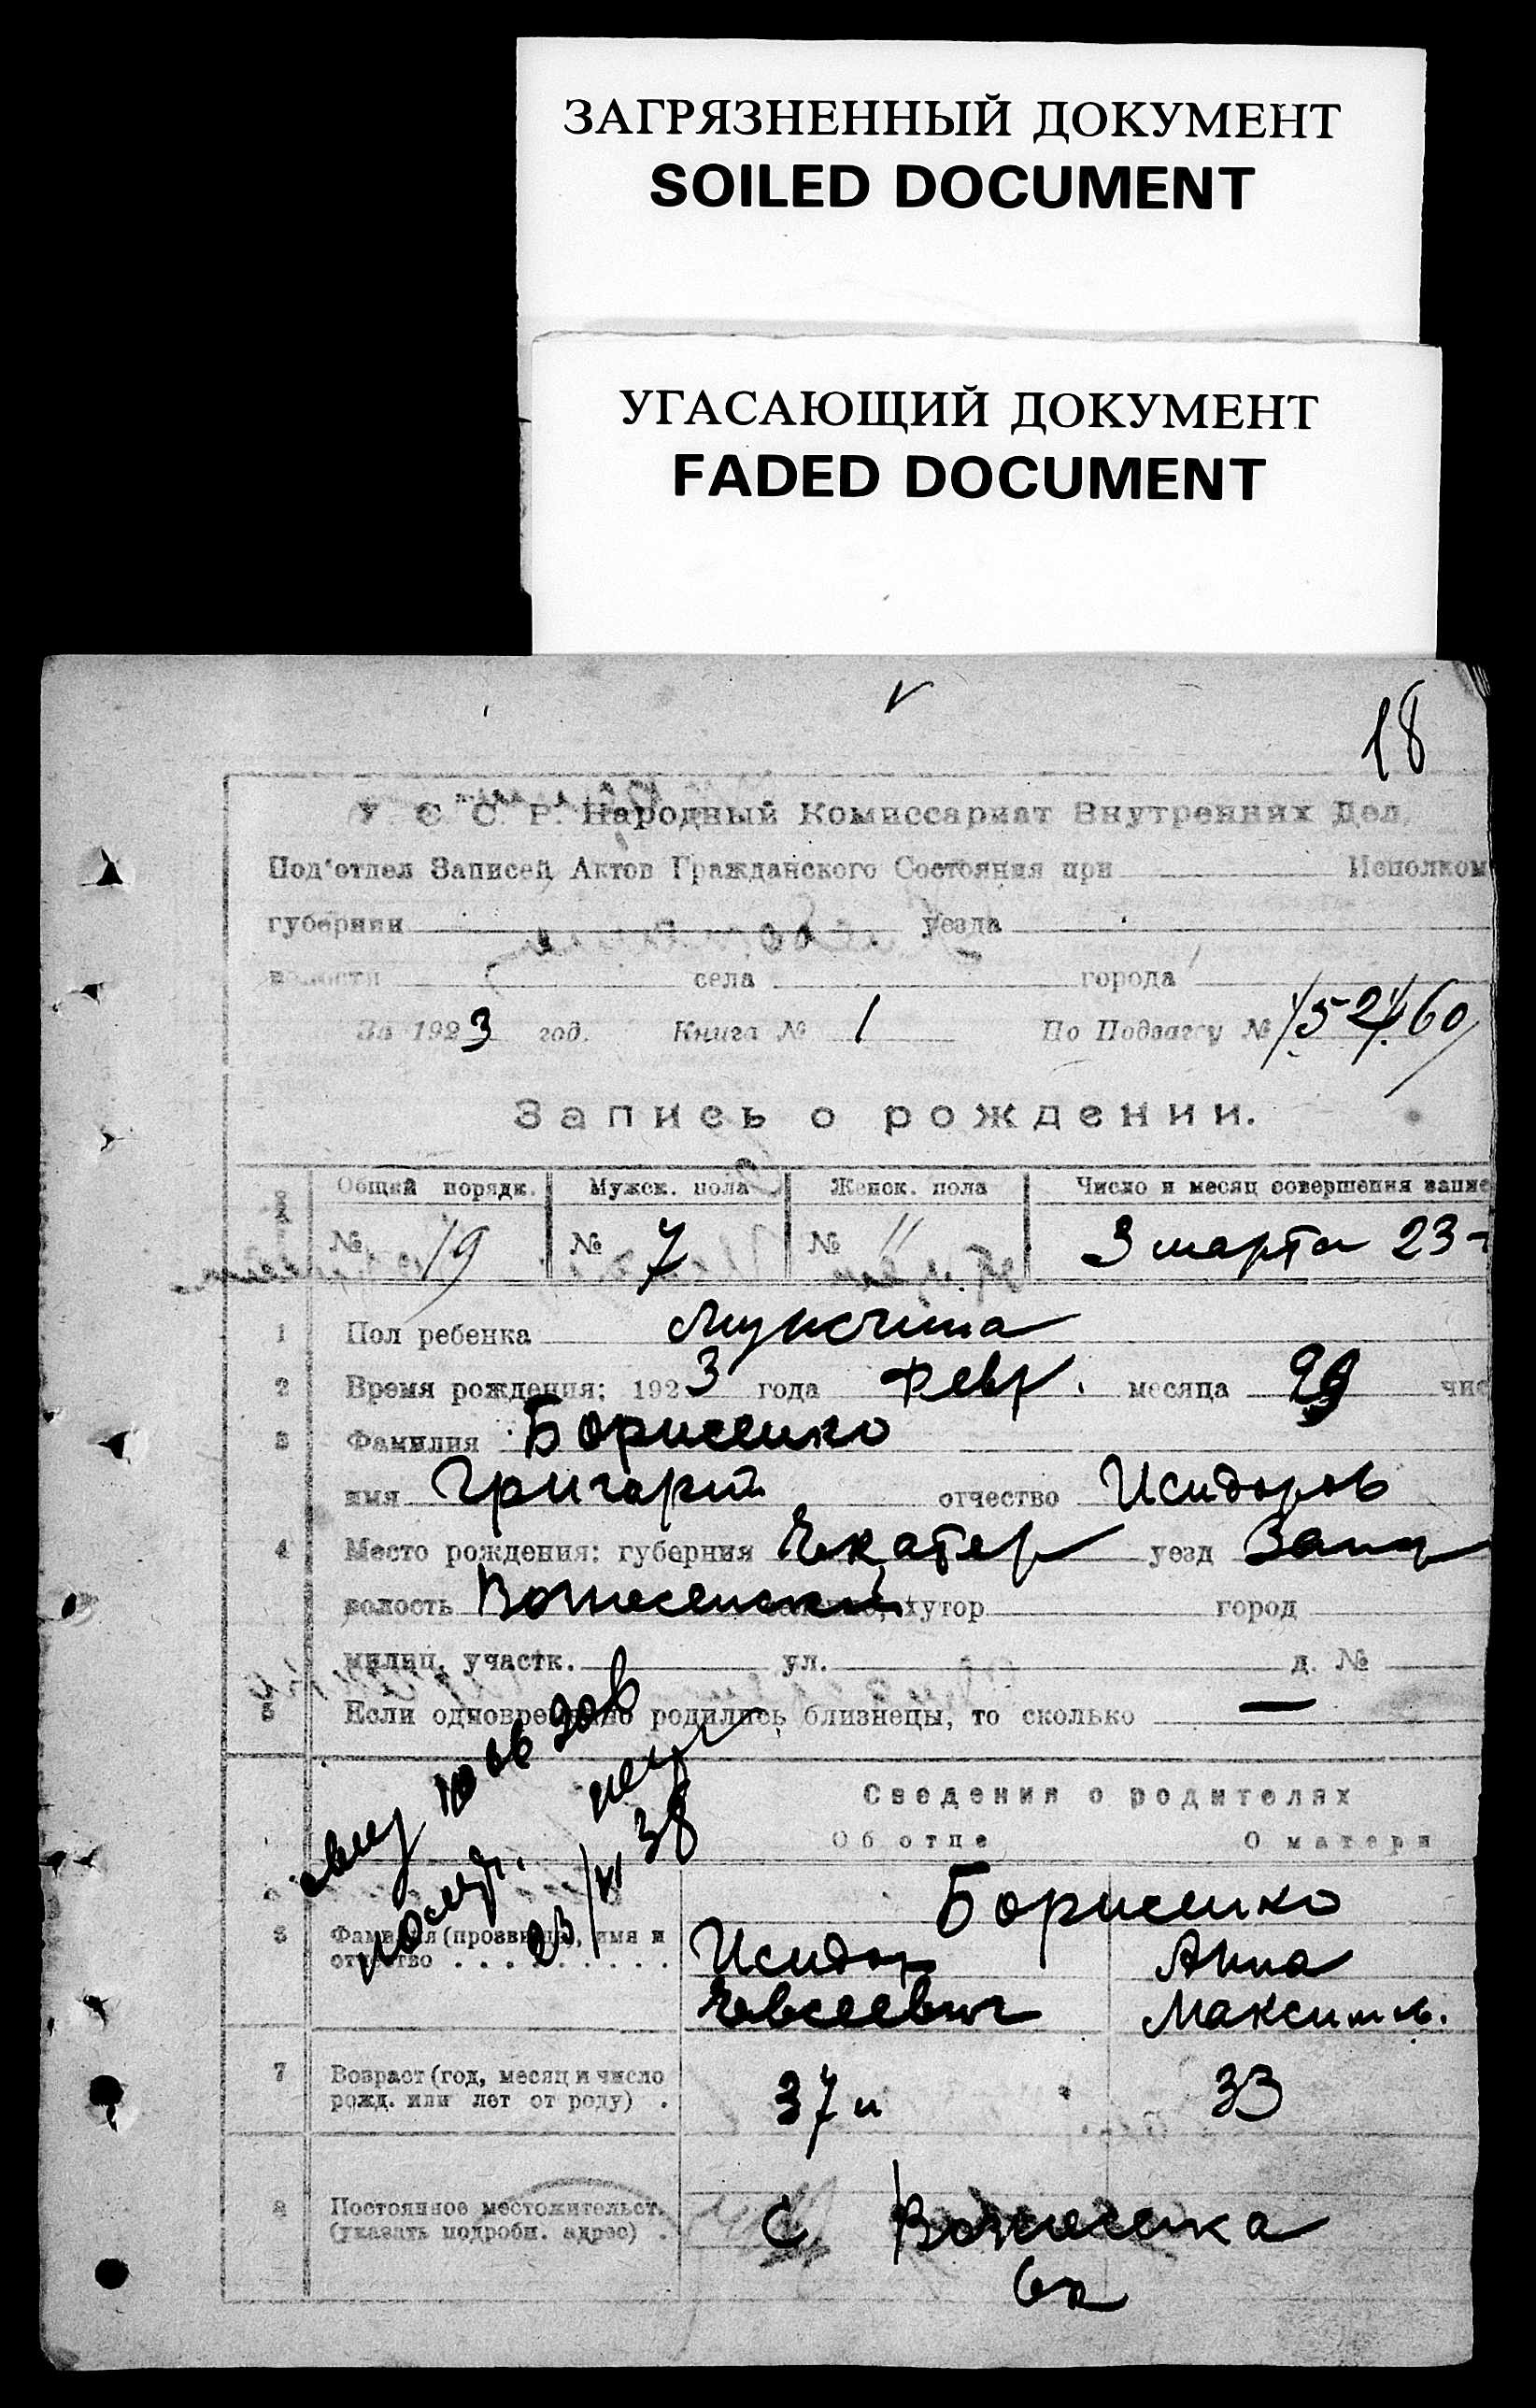 ЗАГРЯЗНЕННЫЙ ДОКУМЕНТ
SOILED DOCUMENT
УГАСАЮЩИЙ ДОКУМЕНТ
FADED DOCUMENT
18
У. С. С. Р. Народный Комиссариат Внутренних Дел.
Под'отдел Записей Актов Гражданского Состояния при Исполком
губернии уезда
волости села города
За 1923 год. Книга № 1 По Подзагсу №
Запись о рождении.
Общий порядк. Мужск. пола Женск. пола Число и месяц совершения запис
№ 19 № 7 № " 3 марта 23
1 Пол ребенка Мужчина
2 Время рождения: 1923 года Февр. месяца чис
3 Фамилия Борисенко
имя Григорий отчество Исидоров
4 Место рождения: губерния Екатер уезд Запор
волость Вознесенский хутор город
милиц. участк. ул. д. №
5 Если одновременно родились близнецы, то сколько —
Сведения о родителях
Об отце О матери
Борисенко
6 Фамилия (прозвище), имя и Исидор Анна
отчество . . . . . . . . . Евсеевич Максимов.
23/VI 38
7 Возраст (год, месяц и число
рожд. или лет от роду) . 37 33
8 Постоянное местожительст.
(указать подробн. адрес) . С Вознесенка